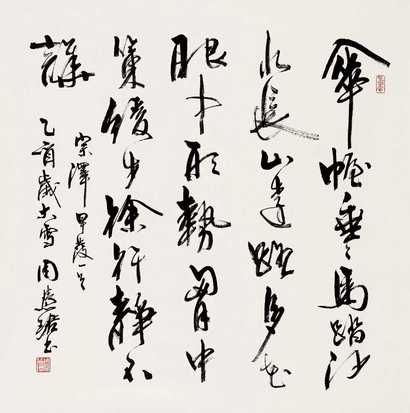 傘幄垂々馬踏沙
水長山遠路多花
眼中形勢胸中
策緩步徐行靜不
譁
宗澤早發一首
乙酉歲大雪周慧珺書